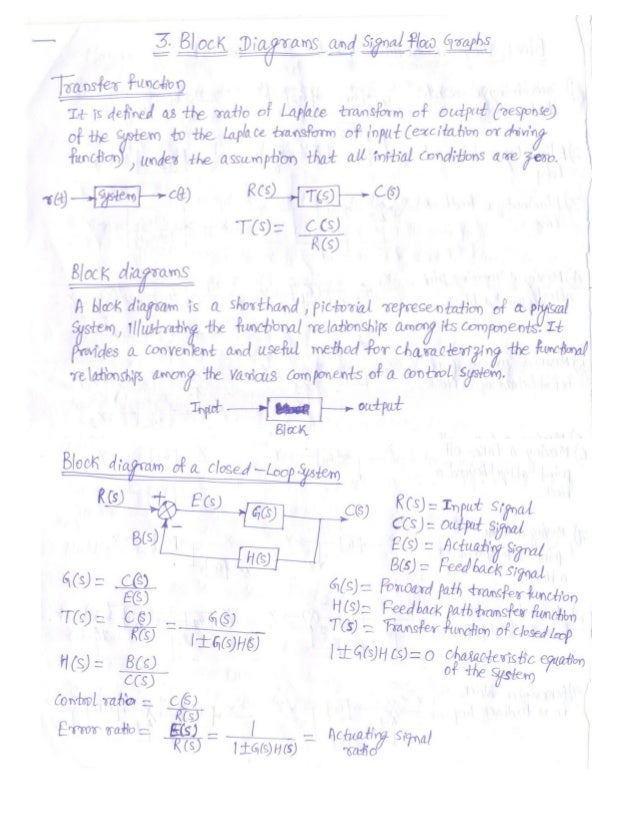 3. Block Diagrams and Signal Flow Graphs
Transfer function
It is defined as the ratio of Laplace transform of output (response)
of the system to the Laplace transform of input (excitation or driving
function), under the assumption that all initial conditions are zero.
r(t) System c(t) R(S) T(S) C(S)
T(S) = C(S)
R(S)
Block diagrams
A block diagram is a shorthand, pictorial representation of a physical
System, illustrating the functional relationships among its components. It
Provides a convenient and useful method for characterizing the functional
relationships among the various components of a control system.
Input output
Block
Block diagram of a closed-Loop System
R(S) + E(S) G(S) C(S)
−
B(S)
H(S)
R(S) = Input Signal
C(S) = output Signal
E(S) = Actuating Signal
B(S) = Feedback Signal
G(S) = Forward path transfer function
H(S) = Feedback path transfer function
T(S) = Transfer function of closed loop
1±G(S)H(S)=0 characteristic equation
of the system
G(S) = C(S)
E(S)
T(S) = C(S) = G(S)
R(S) 1±G(S)H(S)
H(S) = B(S)
C(S)
Control ratio = C(S)
R(S)
Error ratio = E(S) = 1 = Actuating Signal
R(S) 1±G(S)H(S) ratio